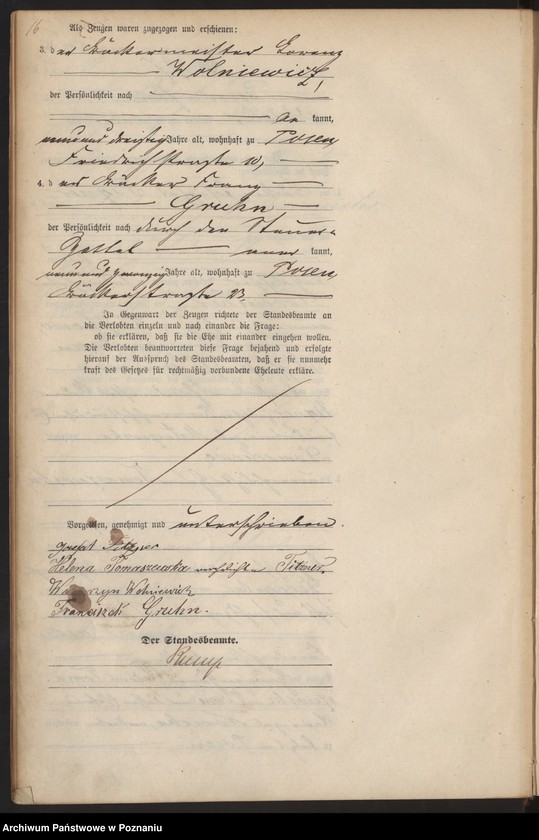 16
Als Zeugen waren zugezogen und erschienen:
3. der Bäckermeister Lorenz
Wolniewicz
der Persönlichkeit nach
be kannt,
neununddreißig Jahre alt, wohnhaft zu Posen
Friedrichstraße 10,
4. der Bäcker Franz
Gruhn
der Persönlichkeit nach durch den Steuer-
Zettel aner kannt,
neunundzwanzig Jahre alt, wohnhaft zu Posen
Bäckerstraße 23,
In Gegenwart der Zeugen richtete der Standesbeamte an
die Verlobten einzeln und nach einander die Frage:
ob sie erklären, daß sie die Ehe mit einander eingehen wollen.
Die Verlobten beantworteten diese Frage bejahend und erfolgte
hierauf der Ausspruch des Standesbeamten, daß er sie nunmehr
kraft des Gesetzes für rechtmäßig verbundene Eheleute erkläre.
Vorgelesen, genehmigt und unterschrieben.
Helena Tomaszewska verehelichte
Wawrzyn Wolniewicz
Franciszek Gruhn.
Der Standesbeamte.
Archiwum Państwowe w Poznaniu